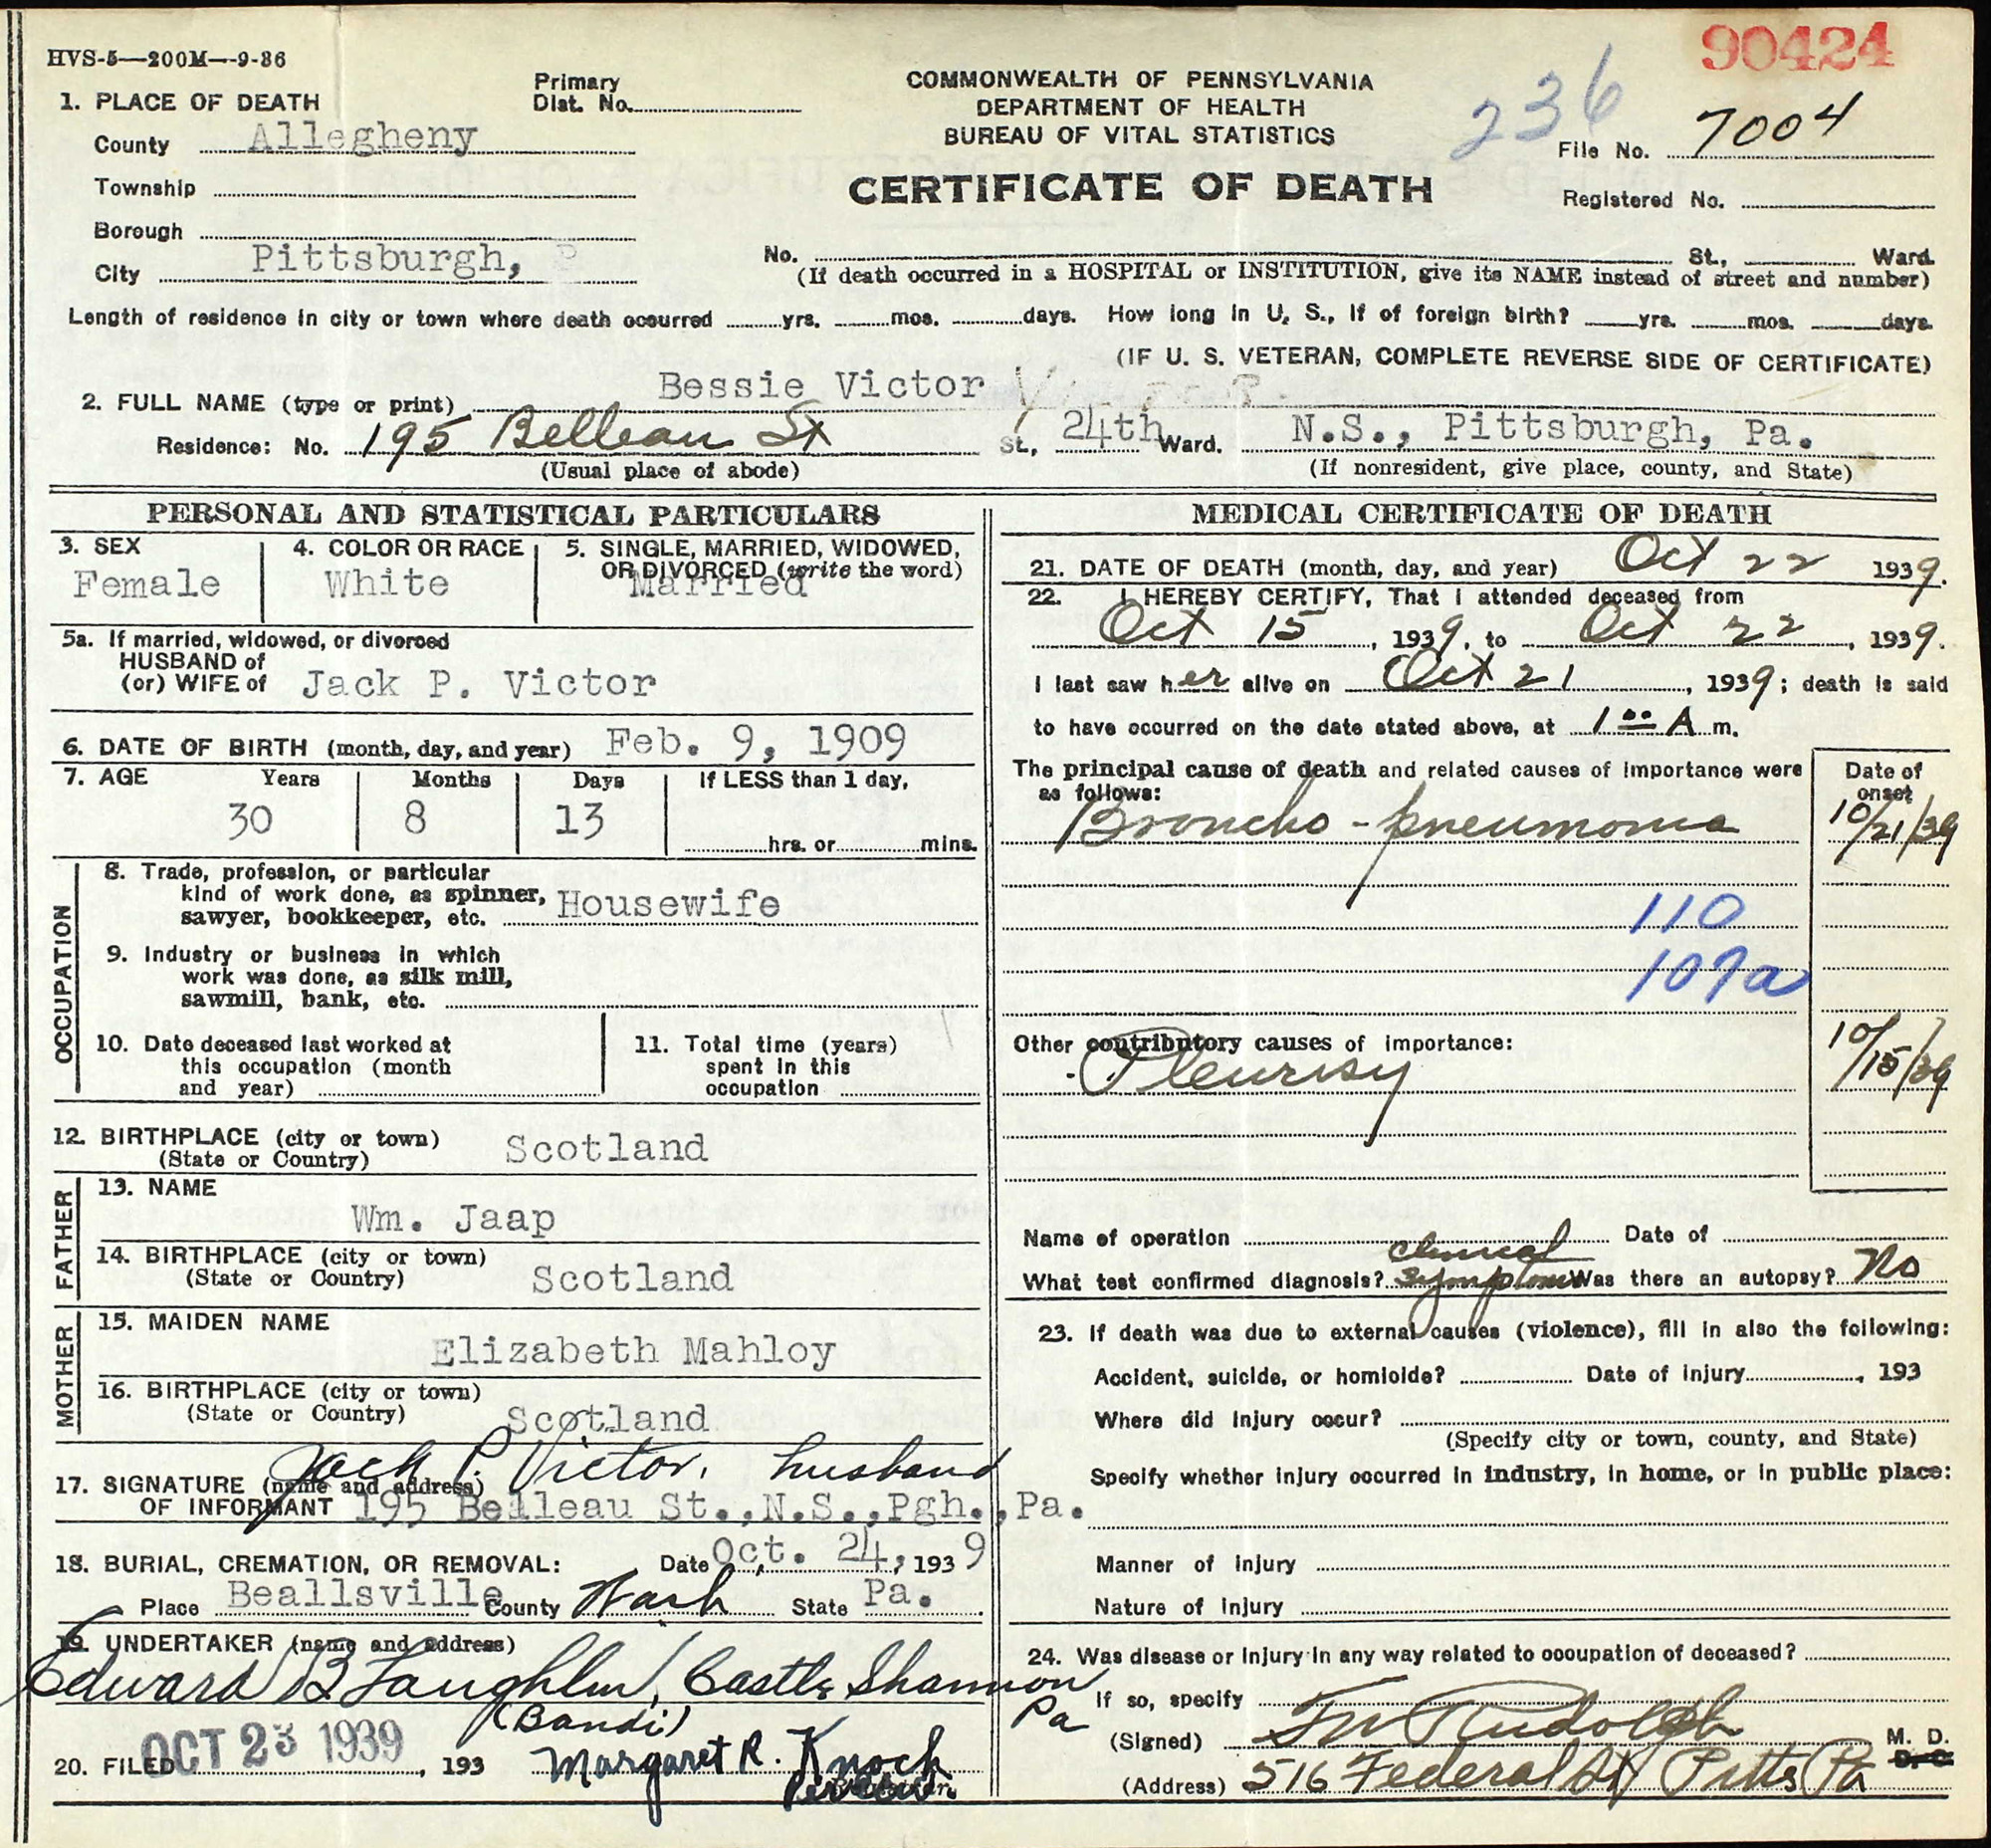 HVS-5—200M—9-36
90424
236
COMMONWEALTH OF PENNSYLVANIA
DEPARTMENT OF HEALTH
BUREAU OF VITAL STATISTICS
CERTIFICATE OF DEATH
File No. 7004
Registered No.
Primary
Dist. No.
1. PLACE OF DEATH
County Allegheny
Township
Borough
City Pittsburgh, P
No. St., Ward.
(If death occurred in a HOSPITAL or INSTITUTION, give its NAME instead of street and number)
Length of residence in city or town where death occurred yrs. mos. days. How long in U. S., if of foreign birth? yrs. mos. days.
(IF U. S. VETERAN, COMPLETE REVERSE SIDE OF CERTIFICATE)
2. FULL NAME (type or print) Bessie Victor
Residence: No. 195 Belleau St St., 24th Ward. N.S., Pittsburgh, Pa.
(Usual place of abode) (If nonresident, give place, county, and State)
PERSONAL AND STATISTICAL PARTICULARS
3. SEX
Female
4. COLOR OR RACE
White
5. SINGLE, MARRIED, WIDOWED,
OR DIVORCED (write the word)
Married
5a. If married, widowed, or divorced
HUSBAND of
(or) WIFE of Jack P. Victor
6. DATE OF BIRTH (month, day, and year) Feb. 9, 1909
7. AGE Years Months Days If LESS than 1 day,
30 8 13 hrs. or mins.
OCCUPATION
8. Trade, profession, or particular
kind of work done, as spinner,
sawyer, bookkeeper, etc. Housewife
9. Industry or business in which
work was done, as silk mill,
sawmill, bank, etc.
10. Date deceased last worked at
this occupation (month
and year)
11. Total time (years)
spent in this
occupation
12. BIRTHPLACE (city or town)
(State or Country) Scotland
FATHER
13. NAME
Wm. Jaap
14. BIRTHPLACE (city or town)
(State or Country) Scotland
MOTHER
15. MAIDEN NAME
Elizabeth Mahloy
16. BIRTHPLACE (city or town)
(State or Country) Scotland
Jack P. Victor, husband
17. SIGNATURE (name and address)
OF INFORMANT 195 Belleau St.,N.S.,Pgh.,Pa.
18. BURIAL, CREMATION, OR REMOVAL: Date Oct. 24, 1939
Place Beallsville County Wash State Pa.
19. UNDERTAKER (name and address)
Edward B Laughlin, Castle Shannon
(Bandi) Pa
20. FILED OCT 23 1939, 193 Margaret R. Knoch
MEDICAL CERTIFICATE OF DEATH
21. DATE OF DEATH (month, day, and year) Oct 22 1939.
22. I HEREBY CERTIFY, That I attended deceased from
Oct 15, 1939, to Oct 22, 1939.
I last saw her alive on Oct 21, 1939; death is said
to have occurred on the date stated above, at 1 00 A m.
The principal cause of death and related causes of importance were
as follows:
Date of
onset
Broncho-pneumonia 10/21/39
110
107a
Other contributory causes of importance:
Pleurisy 10/15/39
Name of operation Date of
clinical
What test confirmed diagnosis? symptoms Was there an autopsy? No
23. If death was due to external causes (violence), fill in also the following:
Accident, suicide, or homicide? Date of injury , 193
Where did injury occur?
(Specify city or town, county, and State)
Specify whether injury occurred in industry, in home, or in public place:
Manner of injury
Nature of injury
24. Was disease or injury in any way related to occupation of deceased?
If so, specify
(Signed) Rudolph M. D.
D. O.
(Address) 516 Federal St Pitts Pa